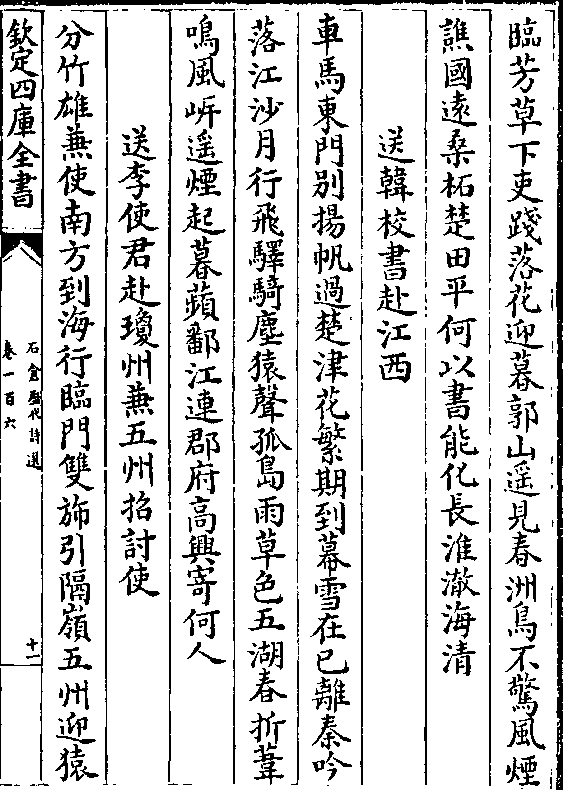 臨芳草下吏踐落花迎暮郭山遥見春洲鳥不驚風煙
譙國遠桑柘楚田平何以書能化長淮澈海清
送韓校書赴江西
車馬東門別揚帆過楚津花繁期到幕雪在已離秦吟
落江沙月行飛驛騎塵猿聲孤島雨草色五湖春折葦
鳴風岍遥煙起暮蘋鄱江連郡府高興寄何人
送李使君赴瓊州兼五州招討使
分竹雄兼使南方到海行臨門雙斾引隔嶺五州迎猿
欽定四庫全書
石倉歴代詩選
卷一百六
十一